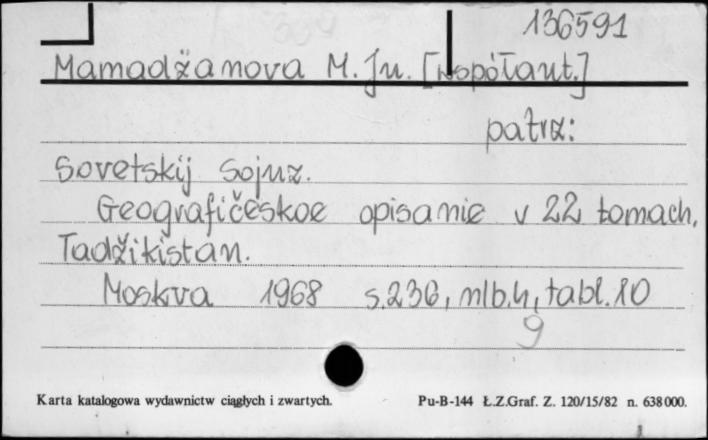 136591
Mamadžanova M. Ju. [współaut.]
patrz:
Sovetskij Sojuz.
Geografičeskoe opisanie v 22 tomach.
Tadžikistan.
Moskva 1968 s.236, nlb.4, tabl.10
9
Karta katalogowa wydawnictw ciągłych i zwartych. Pu-B-144 Ł.Z.Graf. Z. 120/15/82 n. 638000.